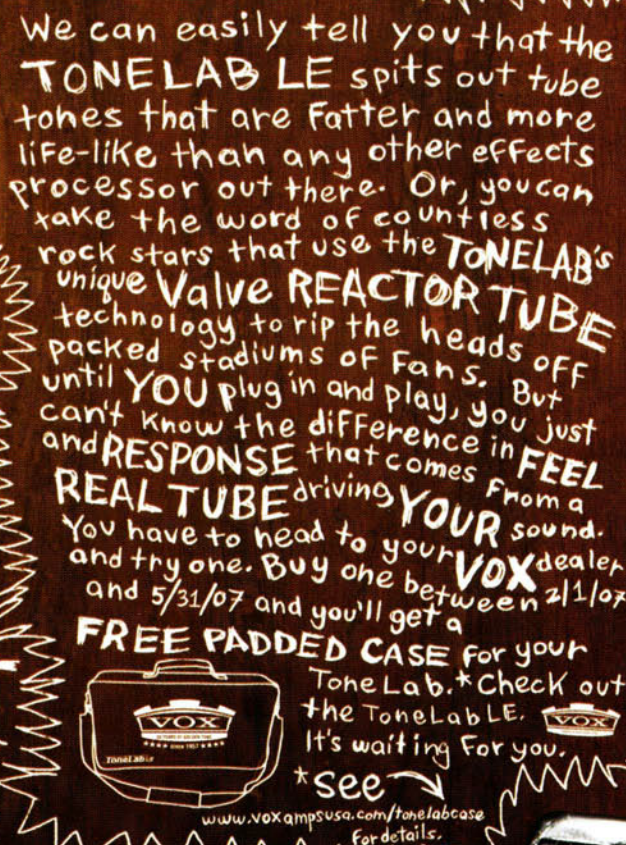 We can easily tell you that the
TONELAB LE spits out tube
tones that are fatter and more
life-like than any other effects
processor out there. Or, you can
take the word of countless
rock stars that use the TONELAB's
unique Valve REACTOR TUBE
technology to rip the heads off
packed stadiums of fans. But
until YOU plug in and play, you just
can't know the difference in FEEL
and RESPONSE that comes from a
REAL TUBE driving YOUR sound.
You have to head to your VOX dealer
and try one. Buy one between 2/1/07
and 5/31/07 and you'll get a
FREE PADDED CASE for your
ToneLab.* Check out
the ToneLab LE. VOX
It's waiting for you.
VOX
SINCE 1957
ToneLab LE
*see
www.voxampsusa.com/tonelabcase
for details.